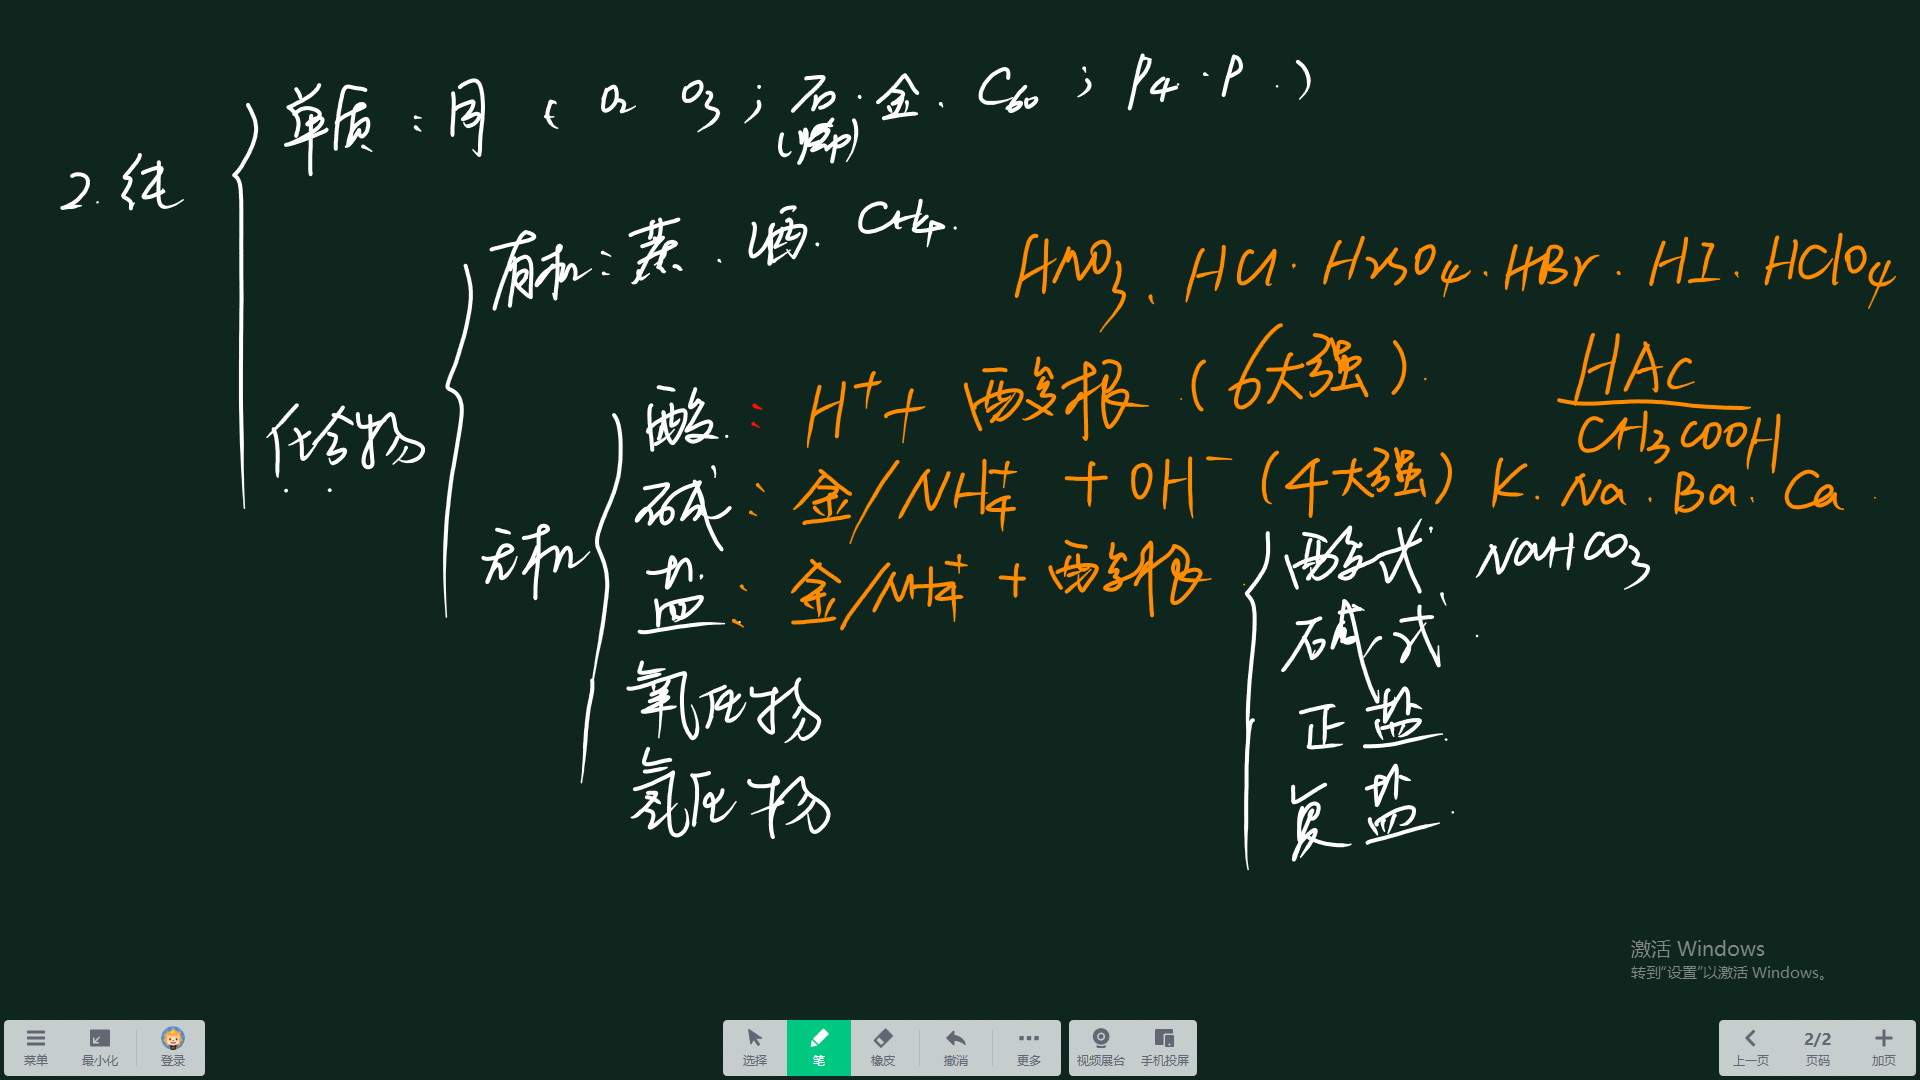 2. 纯
单质：同（ O2 O3；石.金. C60；P4.P.）
有机：蒸.酒. CH4.
HNO3、HCl. H2SO4. HBr. HI. HClO4
化合物
酸：H⁺+ 酸根（6大强）.
HAc
CH3COOH
碱：金/NH4⁺ + OH⁻（4大强）K. Na. Ba. Ca.
无机
盐：金/NH4⁺ + 酸根
酸式 NaHCO3
碱式
氧化物
正盐.
氢化物
复盐.
激活 Windows
转到“设置”以激活 Windows。
菜单 最小化 登录 选择 笔 橡皮 撤消 更多 视频展台 手机投屏 上一页 2/2 页码 加页